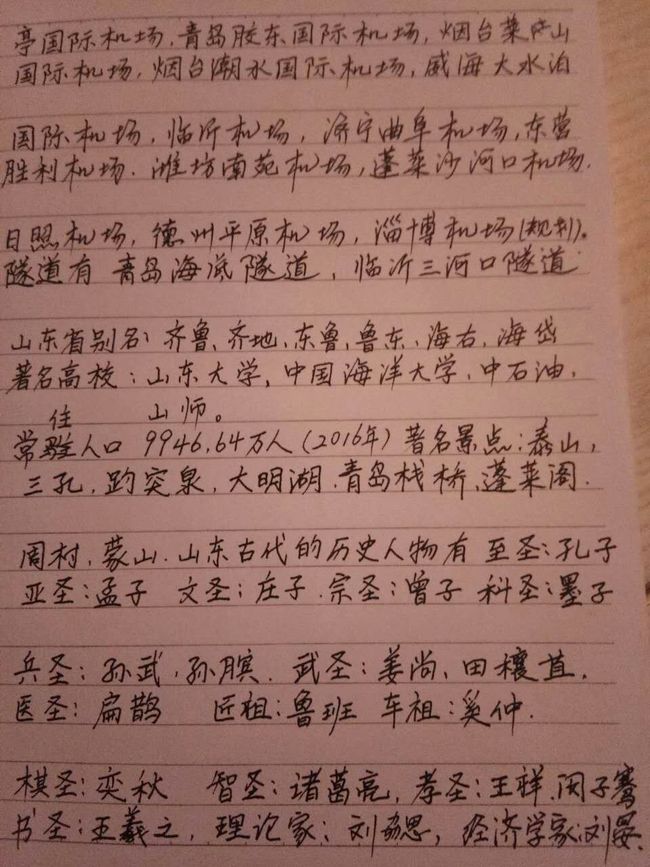 亭国际机场,青岛胶东国际机场,烟台莱山
国际机场,烟台潮水国际机场,威海大水泊
国际机场,临沂机场,济宁曲阜机场,东营
胜利机场.潍坊南苑机场,蓬莱沙河口机场.
日照机场,德州平原机场,淄博机场(规划)。
隧道有 青岛海底隧道,临沂三河口隧道
山东省别名:齐鲁、齐地、东鲁、鲁东、海右、海岱
著名高校:山东大学,中国海洋大学,中石油,
住 山师。
常驻人口 9946.64万人(2016年)著名景点:泰山,
三孔,趵突泉,大明湖.青岛栈桥,蓬莱阁.
周村,蒙山.山东古代的历史人物有 至圣:孔子
亚圣:孟子 文圣:庄子.宗圣:曾子 科圣:墨子
兵圣:孙武,孙膑. 武圣:姜尚、田穰苴.
医圣:扁鹊 匠祖:鲁班 车祖:奚仲.
棋圣:奕秋 智圣:诸葛亮,孝圣:王祥.闵子骞
书圣:王羲之,理论家:刘勰思,经济学家:刘晏.